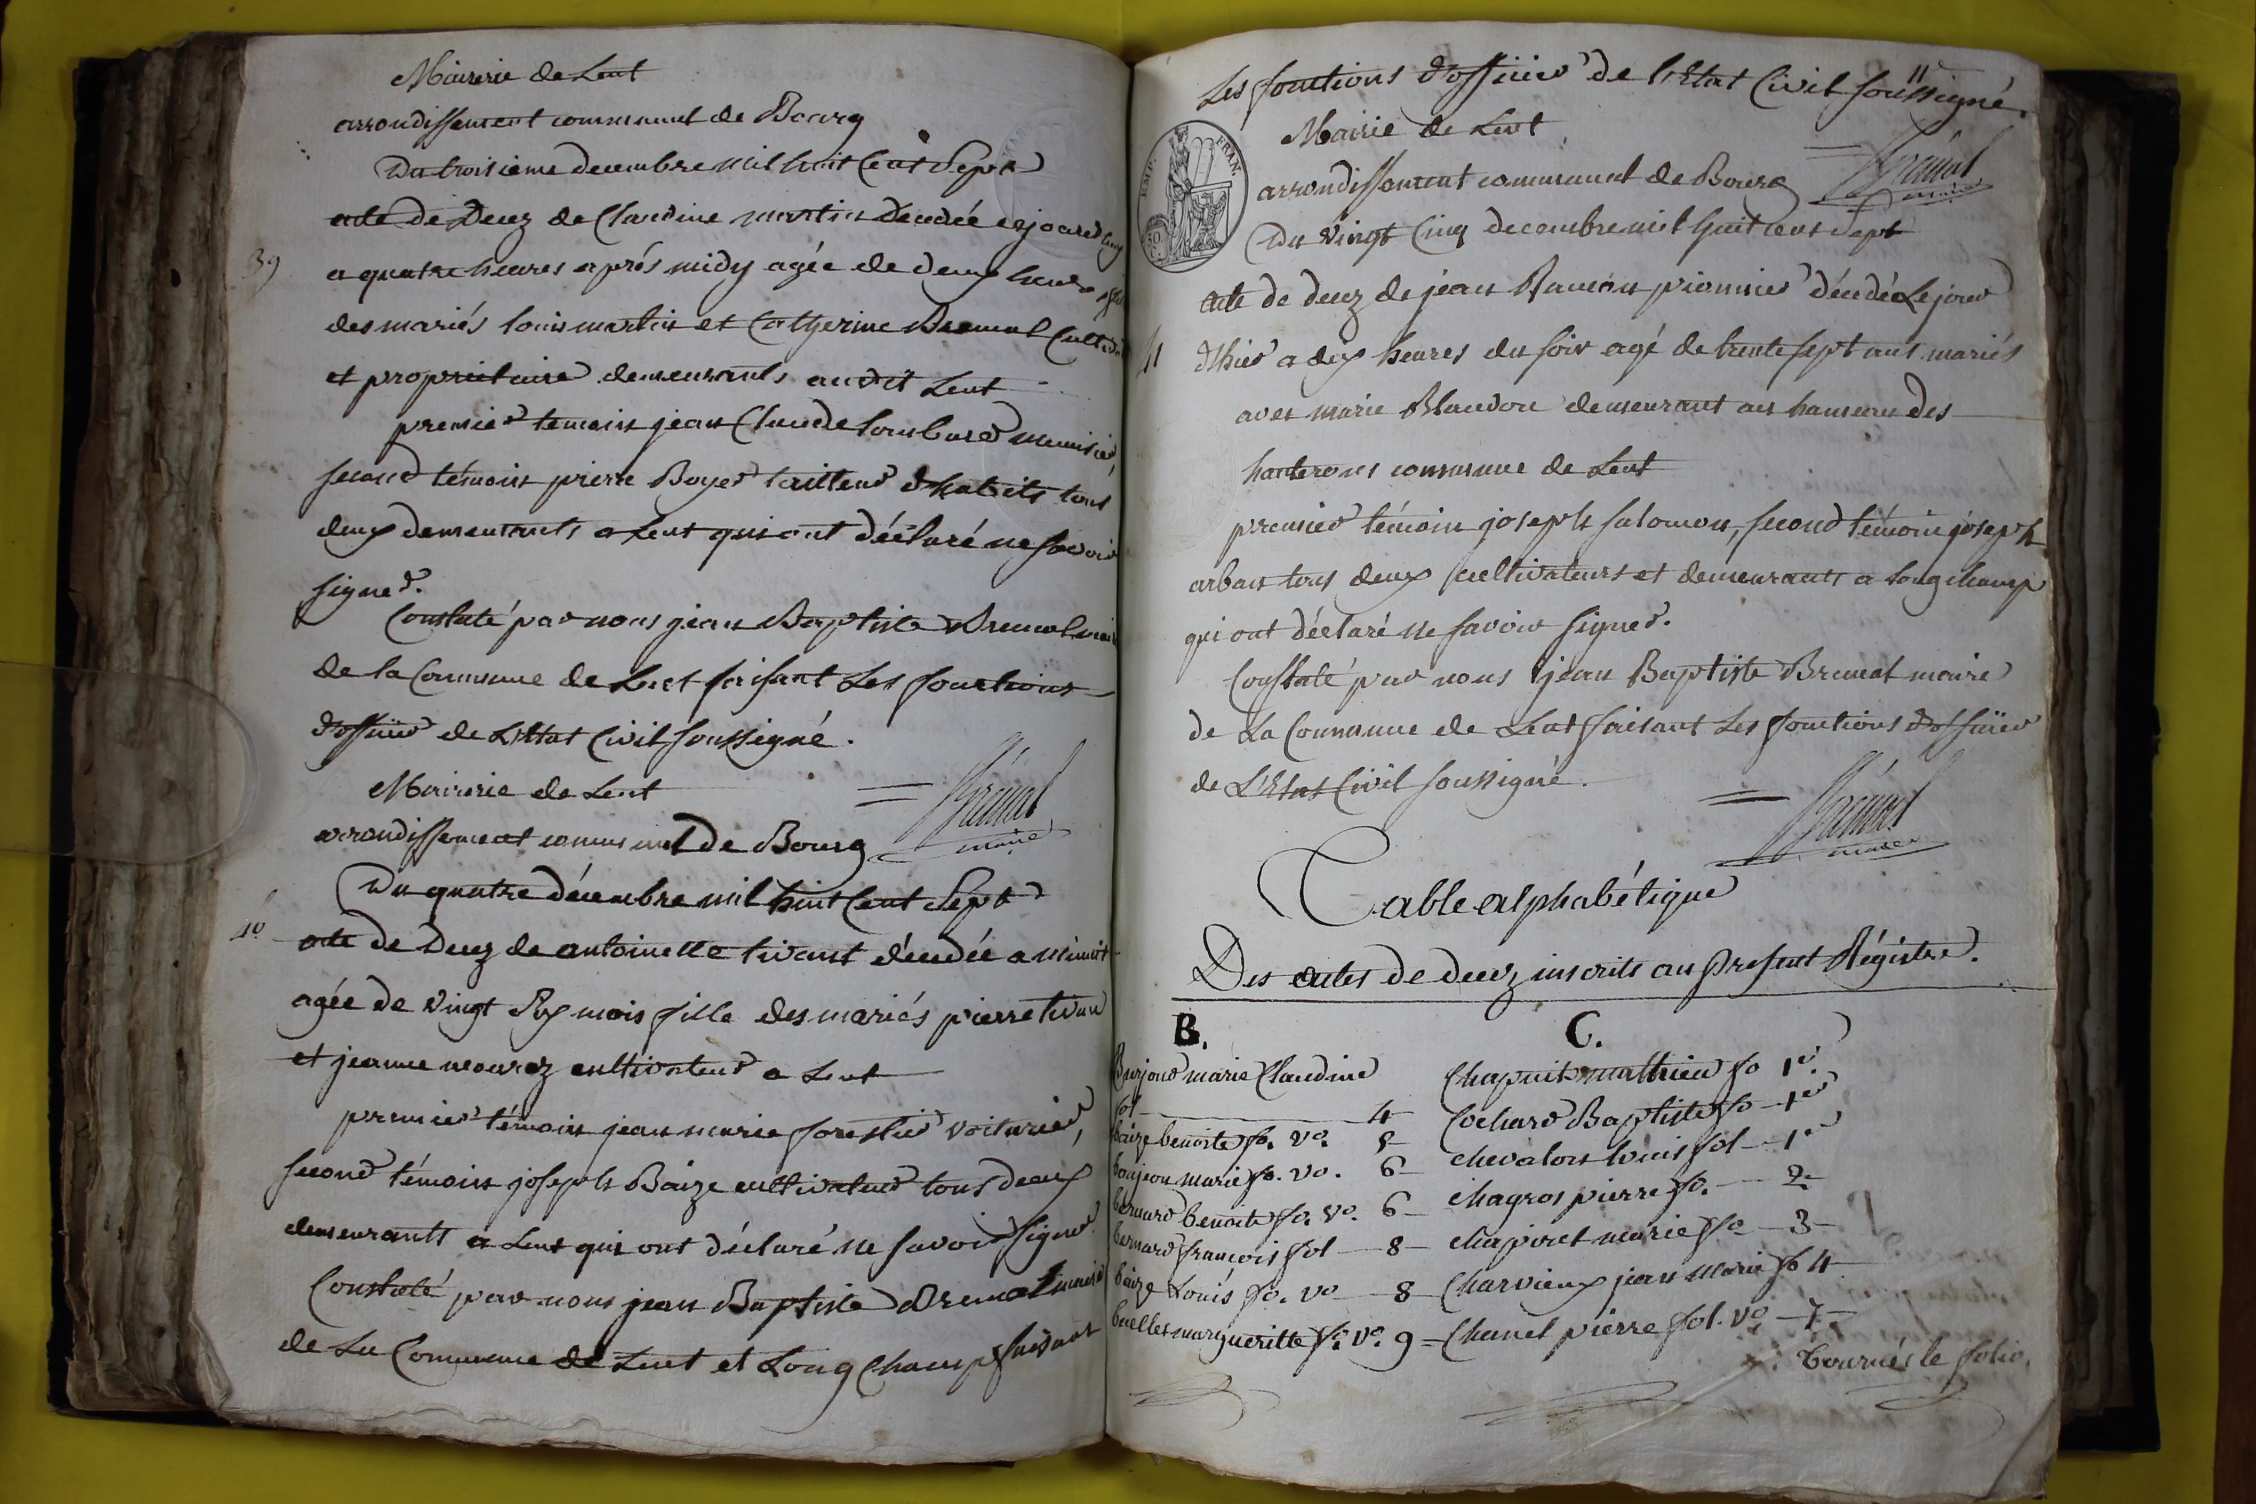 Mairerie de Lent
arrondissement communal de Bourg
Du troisieme decembre mil huit Cent Sept
39
acte de Decez de Claudine martin Decedée cejourdhuy
a quatre heures aprés midy agée de deux heures fille
des mariés louis martin et Catherine Bremal Cult
et propriétaire demeurants audit Lent
premier temoin jean Claude lombard menuisier,
second témoin pierre Boyer tailleur d'habits tous
deux demeurants a Lent qui ont déclaré ne savoir
signer.
Constaté par nous jean Baptiste Bremal maire
de la Commune de Lent faisant Les fonctions
d'officier de L'Etat Civil soussigné.
Brémal
maire
Mairerie de Lent
arrondissement communal De Bourg
Du quatre décembre mil huit Cent Sept
40
acte de Decez de antoinette tivant décedée a minuit
agée de vingt Six mois fille des mariés pierre tivan
et jeanne mourez cultivateur a Lent
premier témoin jean marie forestier voiturier,
second témoin joseph Baize cultivateur tous deux
demeurants a Lent qui ont déclaré ne savoir signer.
Constaté par nous jean Baptiste Bremal maire
de La Commune de Lent et Long Champ faisant
11
Les fonctions d'officier de l'Etat Civil soussigné.
Brémal
maire
EMP. FRAN.
50
Mairie de Lent
arrondissement communal de Bourg
Du vingt Cinq decembre mil huit cent Sept
41
acte de decez de jean Ramon pionnier décedé Lejour
d'hier a dix heures du soir agé de trente sept ans mariés
avec marie Blandon demeurant au hameau des
hauterons commune de Lent
premier témoin joseph salomon, second témoin joseph
arban tous deux cultivateurs et demeurants a Longchamp
qui ont déclaré ne savoir signer.
Constaté par nous jean Baptiste Bremal maire
de La Commune de Lent faisant Les fonctions d'officier
de L'Etat Civil soussigné.
Brémal
maire
Table alphabétique
Des actes de decez inscrits au present Régistre.
B.
Burjoud marie Claudine
fol 4
baize benoite fo. vo. 5
boujeon marie fo. vo. 6
bernard benoite fo. vo. 6
bernard françois fol 8
baize Louis fo. vo 8
buellet margueritte fo. vo. 9
C.
Chapuit mathieu fo 1er.
Cochard Baptiste fo 1er
chevalon louis fol 1er
chagros pierre fo. 2.
chapiret marie fo 3
Charvieux jean marie fo 4
Chanel pierre fol. vo 7
tournés le folio.